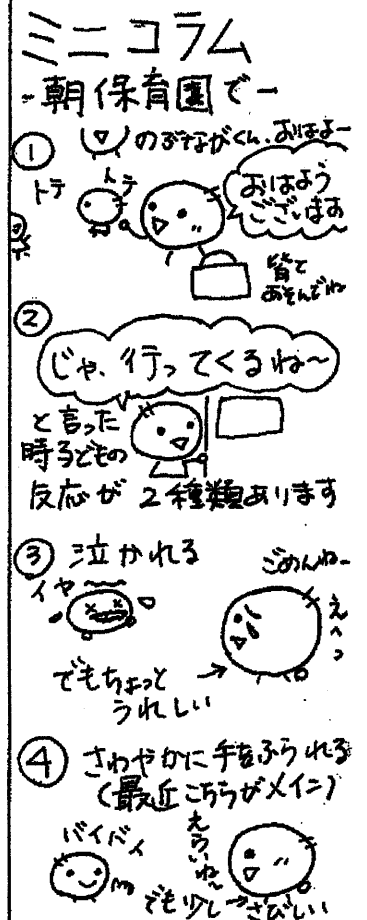 ミニコラム
-朝 保育園で-
①
のぶながくん、おはよー
トテ
トテ
おはよう
ございます
皆と
あそんでね
②
じゃ、行ってくるね〜
と言った
時子どもの
反応が 2種類あります
③ 泣かれる
イヤ〜〜
ごめんねー
えへっ
でもちょっと
うれしい
④ さわやかに手をふられる
(最近こちらがメイン)
バイバイ
えらいね〜
でも少し
さびしい